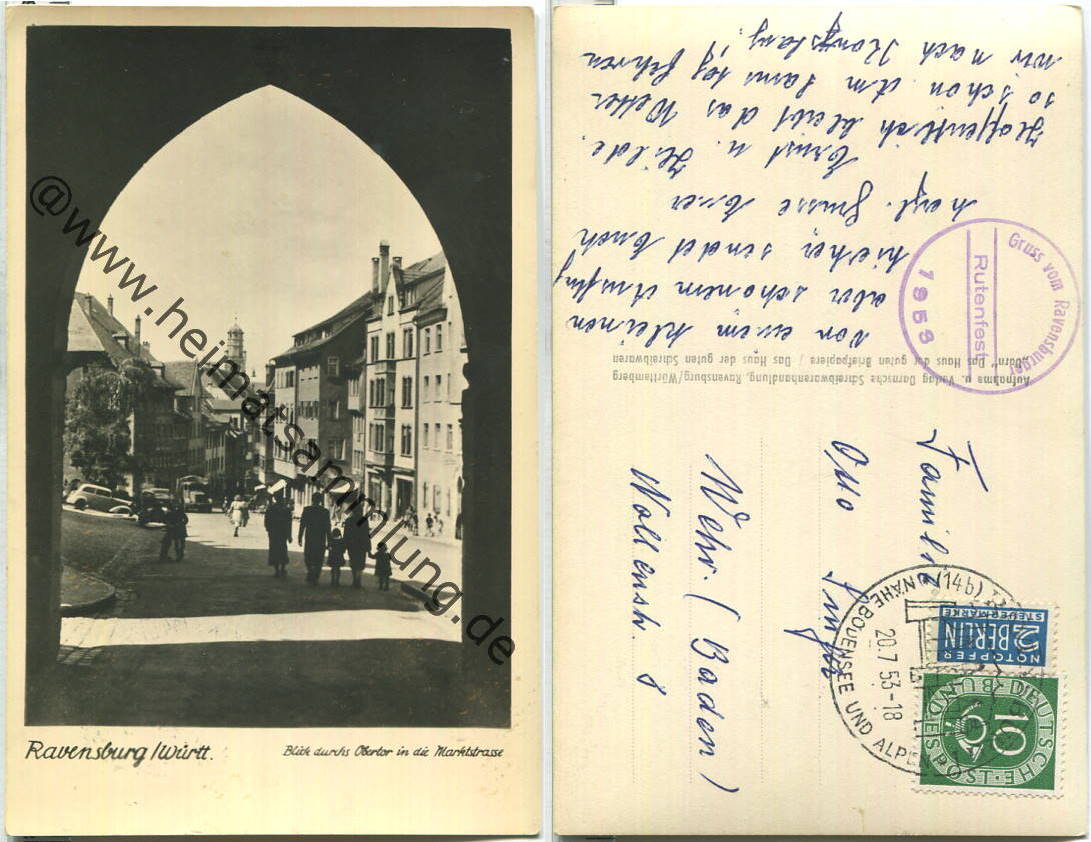 Ravensburg/Württ.
Blick durchs Obertor in die Marktstrasse
@www.heimatsammlung.de
Von einem kleinen
aber schönem Ausflug
hieher, sendet Euch
herzl. Grüsse Euer
Ernst u. Hilde.
Hoffentlich bleibt das Wetter
so schön. Am Samstag fahren
wir nach Konstanz.
Gruss vom Ravensburger
Rutenfest
1953
Aufnahme u. Verlag Dornsche Schreibwarenhandlung, Ravensburg/Württemberg
"Dorn" Das Haus der guten Briefpapiere / Das Haus der guten Schreibwaren
Familie
Otto
Wehr. (Baden)
8
(14b)
NÄHE BODENSEE UND ALPEN
20.7.53-18
NOTOPFER
2 BERLIN
STEUERMARKE
DEUTSCHE
BUNDESPOST
10